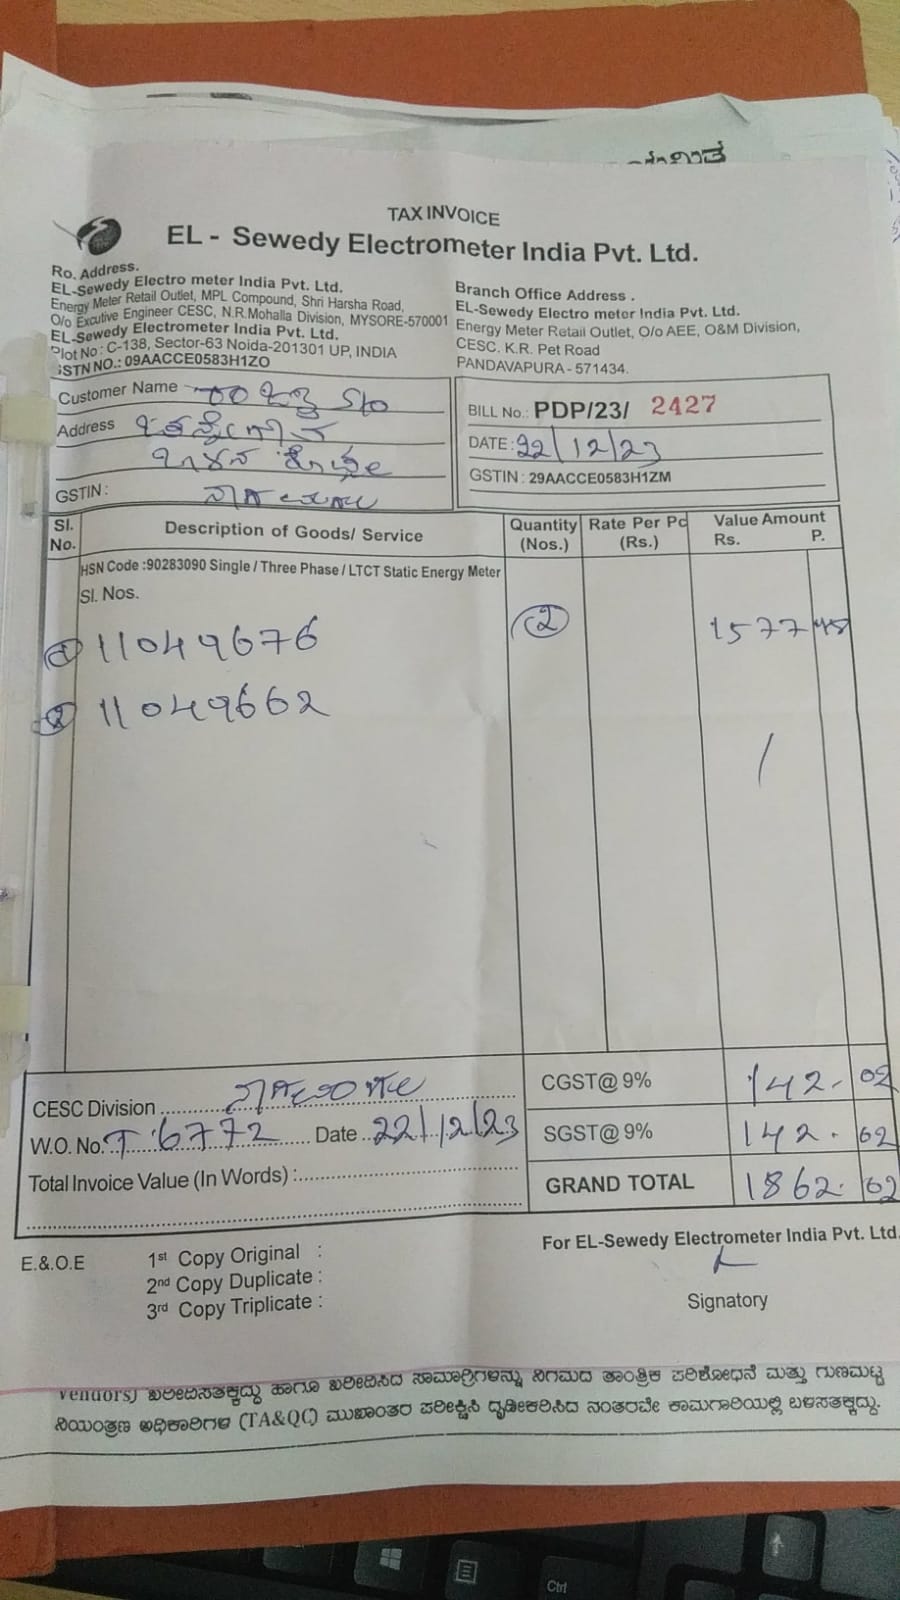 TAX INVOICE
EL - Sewedy Electrometer India Pvt. Ltd.
Ro. Address.
EL-Sewedy Electro meter India Pvt. Ltd.
Energy Meter Retail Outlet, MPL Compound, Shri Harsha Road,
O/o Excutive Engineer CESC, N.R.Mohalla Division, MYSORE-570001
EL-Sewedy Electrometer India Pvt. Ltd.
Plot No : C-138, Sector-63 Noida-201301 UP, INDIA
GSTN NO.: 09AACCE0583H1ZO
Branch Office Address .
EL-Sewedy Electro meter India Pvt. Ltd.
Energy Meter Retail Outlet, O/o AEE, O&M Division,
CESC. K.R. Pet Road
PANDAVAPURA - 571434.
Customer Name S/o
Address
GSTIN :
BILL No.: PDP/23/ 2427
DATE: 22/12/23
GSTIN : 29AACCE0583H1ZM
Sl. No. Description of Goods/ Service Quantity (Nos.) Rate Per Pc (Rs.) Value Amount Rs. P.
HSN Code :90283090 Single / Three Phase / LTCT Static Energy Meter
Sl. Nos.
1 11049676 2 1577
2 11049662
CESC Division
W.O. No. T 6772 Date 22/12/23
Total Invoice Value (In Words) :
CGST@ 9% 142. 02
SGST@ 9% 142. 02
GRAND TOTAL 1862. 02
E.&.O.E
1st Copy Original :
2nd Copy Duplicate :
3rd Copy Triplicate :
For EL-Sewedy Electrometer India Pvt. Ltd.
Signatory
Vendors) ಖರೀದಿಸತಕ್ಕದ್ದು ಹಾಗೂ ಖರೀದಿಸಿದ ಸಾಮಾಗ್ರಿಗಳನ್ನು ನಿಗಮದ ತಾಂತ್ರಿಕ ಪರಿಶೋಧನೆ ಮತ್ತು ಗುಣಮಟ್ಟ
ನಿಯಂತ್ರಣ ಅಧಿಕಾರಿಗಳ (TA&QC) ಮುಖಾಂತರ ಪರೀಕ್ಷಿಸಿ ದೃಢೀಕರಿಸಿದ ನಂತರವೇ ಕಾಮಗಾರಿಯಲ್ಲಿ ಬಳಸತಕ್ಕದ್ದು.
Ctrl